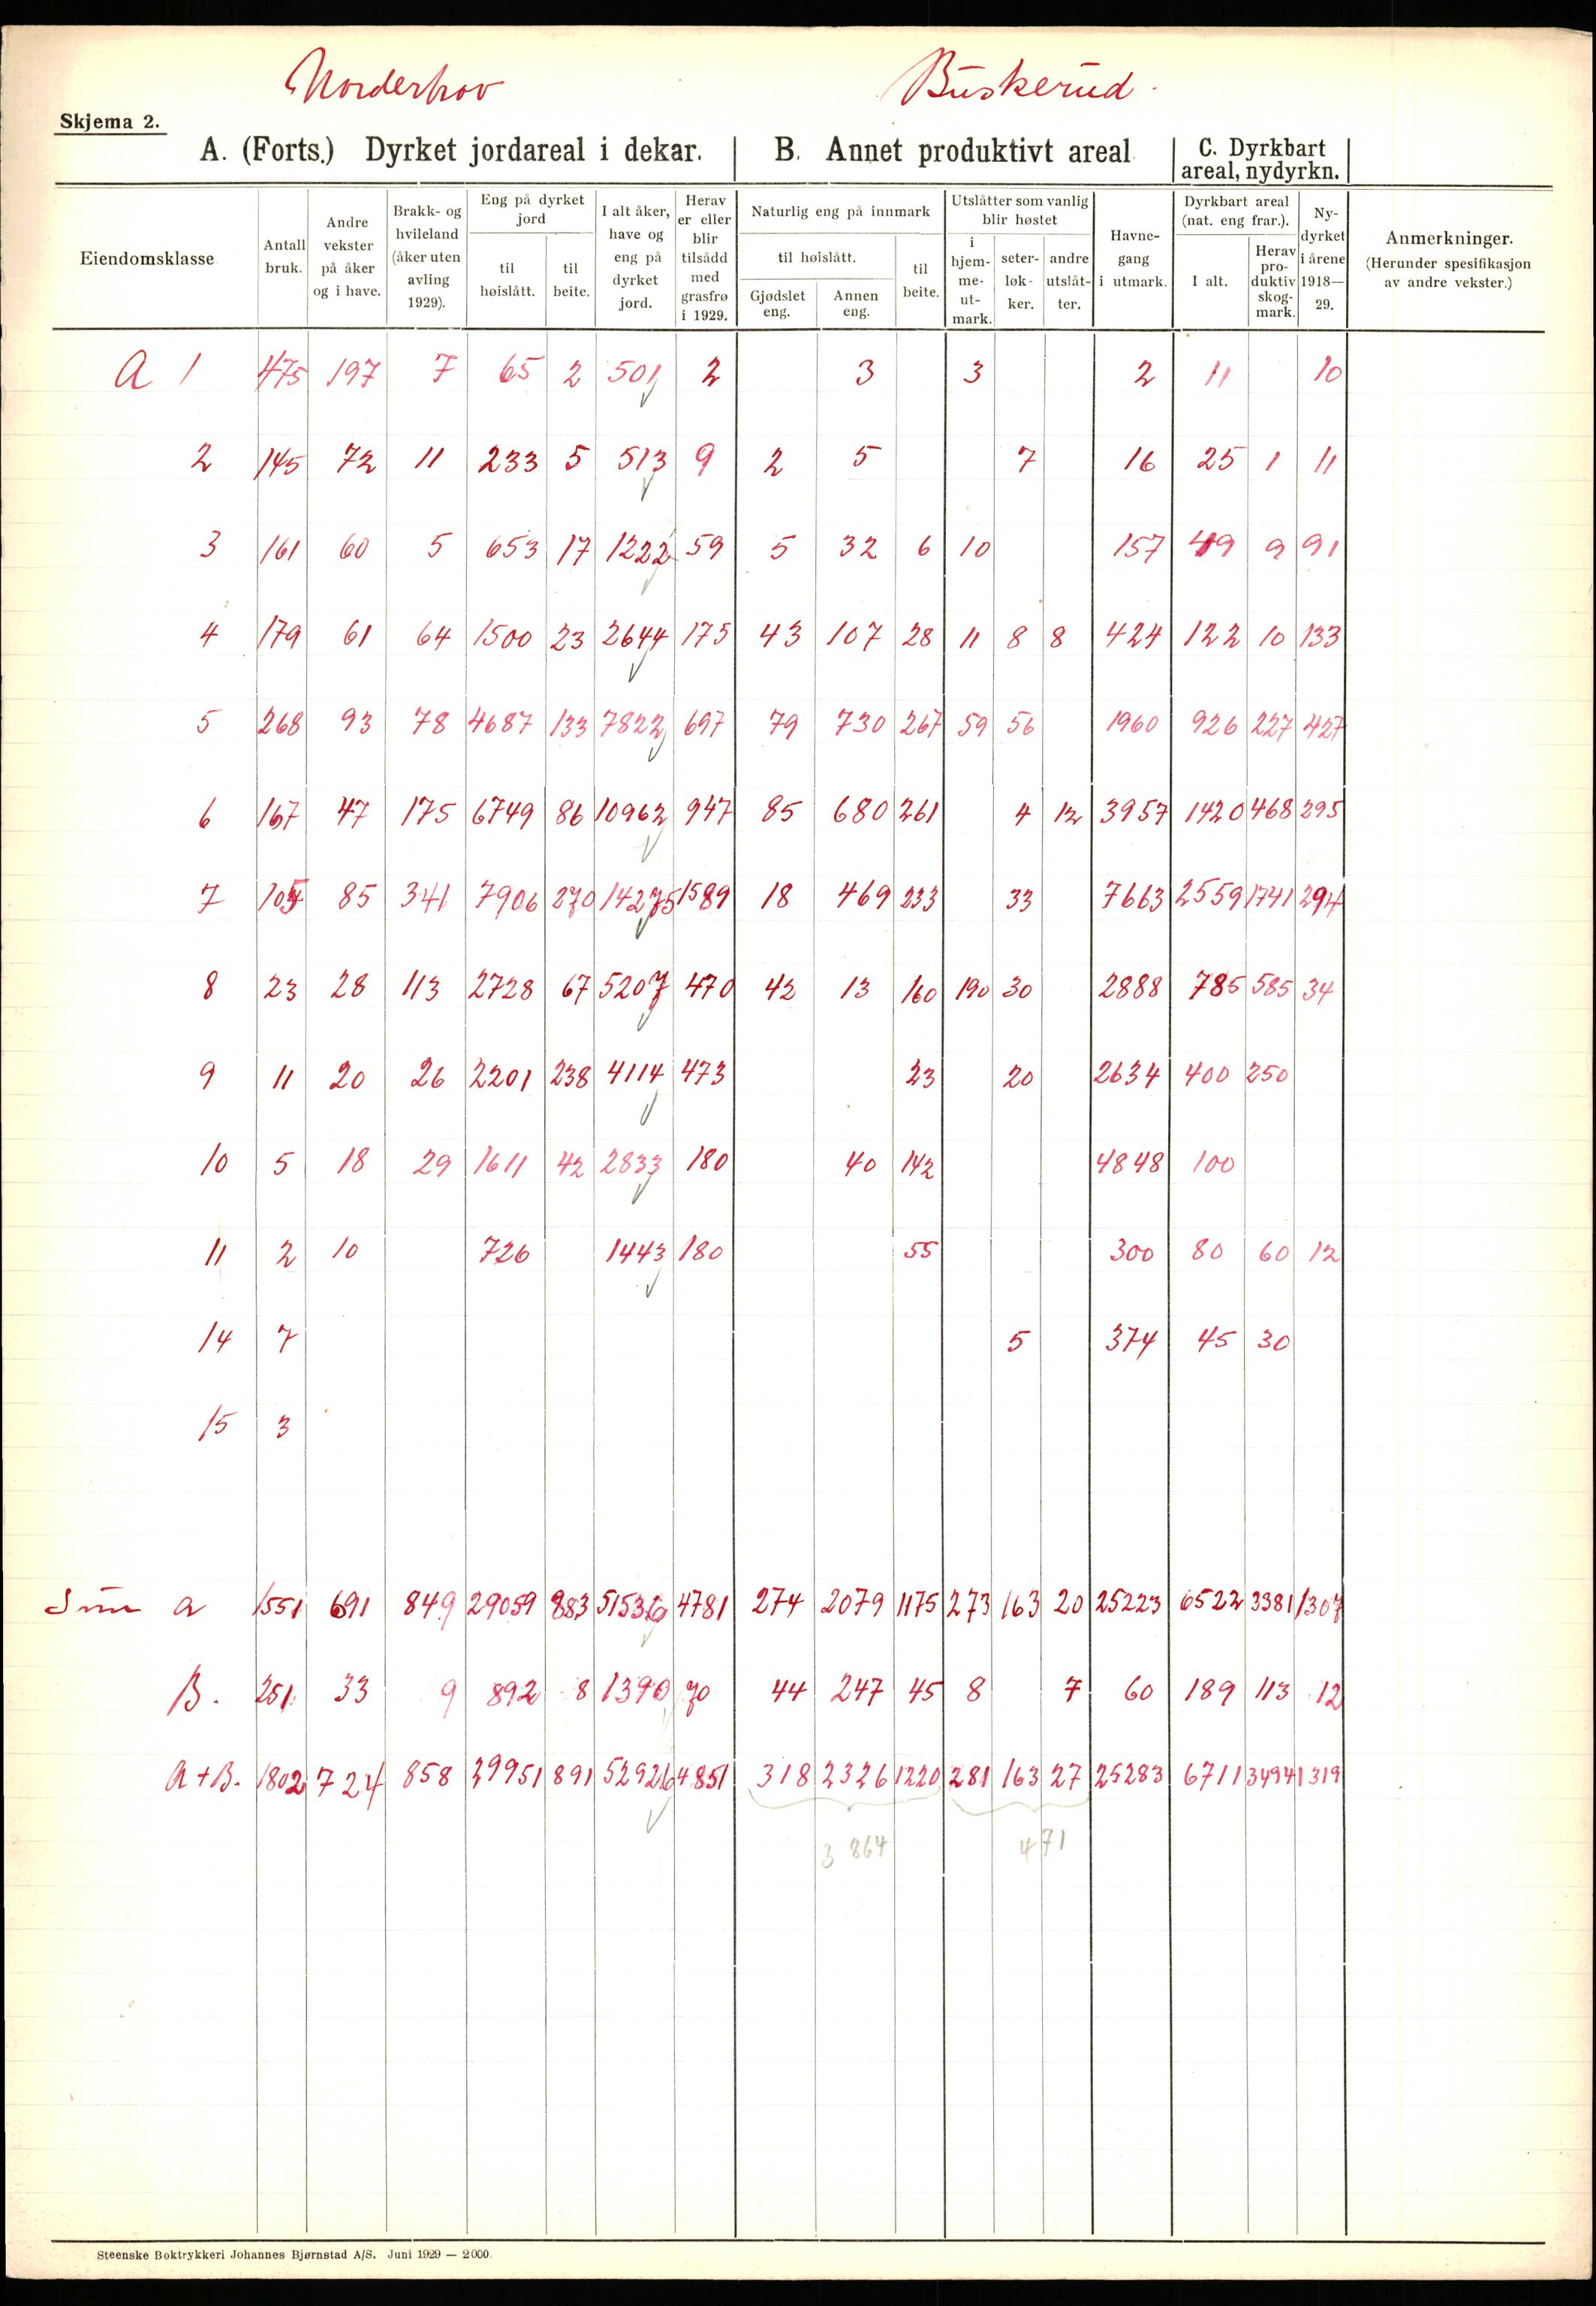 Norderhov Buskerud.
Skjema 2.
A. (Forts.) Dyrket jordareal i dekar. B. Annet produktivt areal C. Dyrkbart areal, nydyrkn.
Eiendomsklasse
Antall bruk.
Andre vekster på åker og i have.
Brakk- og hvileland (åker uten avling 1929).
Eng på dyrket jord
til høislått.
til beite.
I alt åker, have og eng på dyrket jord.
Herav er eller blir tilsådd med grasfrø i 1929.
Naturlig eng på innmark
til høislått.
Gjødslet eng.
Annen eng.
til beite.
Utslåtter som vanlig blir høstet
i hjem- me- ut- mark.
seter- løk- ker.
andre utslåt- ter.
Havne- gang i utmark.
Dyrkbart areal (nat. eng frar.).
I alt.
Herav pro- duktiv skog- mark.
Ny- dyrket i årene 1918— 29.
Anmerkninger.
(Herunder spesifikasjon av andre vekster.)
A 1 475 197 7 65 2 501 2 3 3 2 11 10
2 145 72 11 233 5 513 9 2 5 7 16 25 1 11
3 161 60 5 653 17 1222 59 5 32 6 10 157 49 9 91
4 179 61 64 1500 23 2644 175 43 107 28 11 8 8 424 122 10 133
5 268 93 78 4687 133 7822 697 79 730 267 59 56 1960 926 227 427
6 167 47 175 6749 86 10962 947 85 680 261 4 12 3957 1420 468 295
7 105 85 341 7906 270 14275 1589 18 469 233 33 7663 2559 1741 294
8 23 28 113 2728 67 5207 470 42 13 160 190 30 2888 785 585 34
9 11 20 26 2201 238 4114 473 23 20 2634 400 250
10 5 18 29 1611 42 2833 180 40 142 4848 100
11 2 10 726 1443 180 55 300 80 60 12
14 7 5 374 45 30
15 3
Sum a 1551 691 849 29059 883 51536 4781 274 2079 1175 273 163 20 25223 6522 3381 1307
B. 251 33 9 892 8 1390 70 44 247 45 8 7 60 189 113 12
A+B. 1802 724 858 29951 891 52926 4851 318 2326 1220 281 163 27 25283 6711 3494 1319
3 864 471
Steenske Boktrykkeri Johannes Bjørnstad A/S. Juni 1929 — 2000.